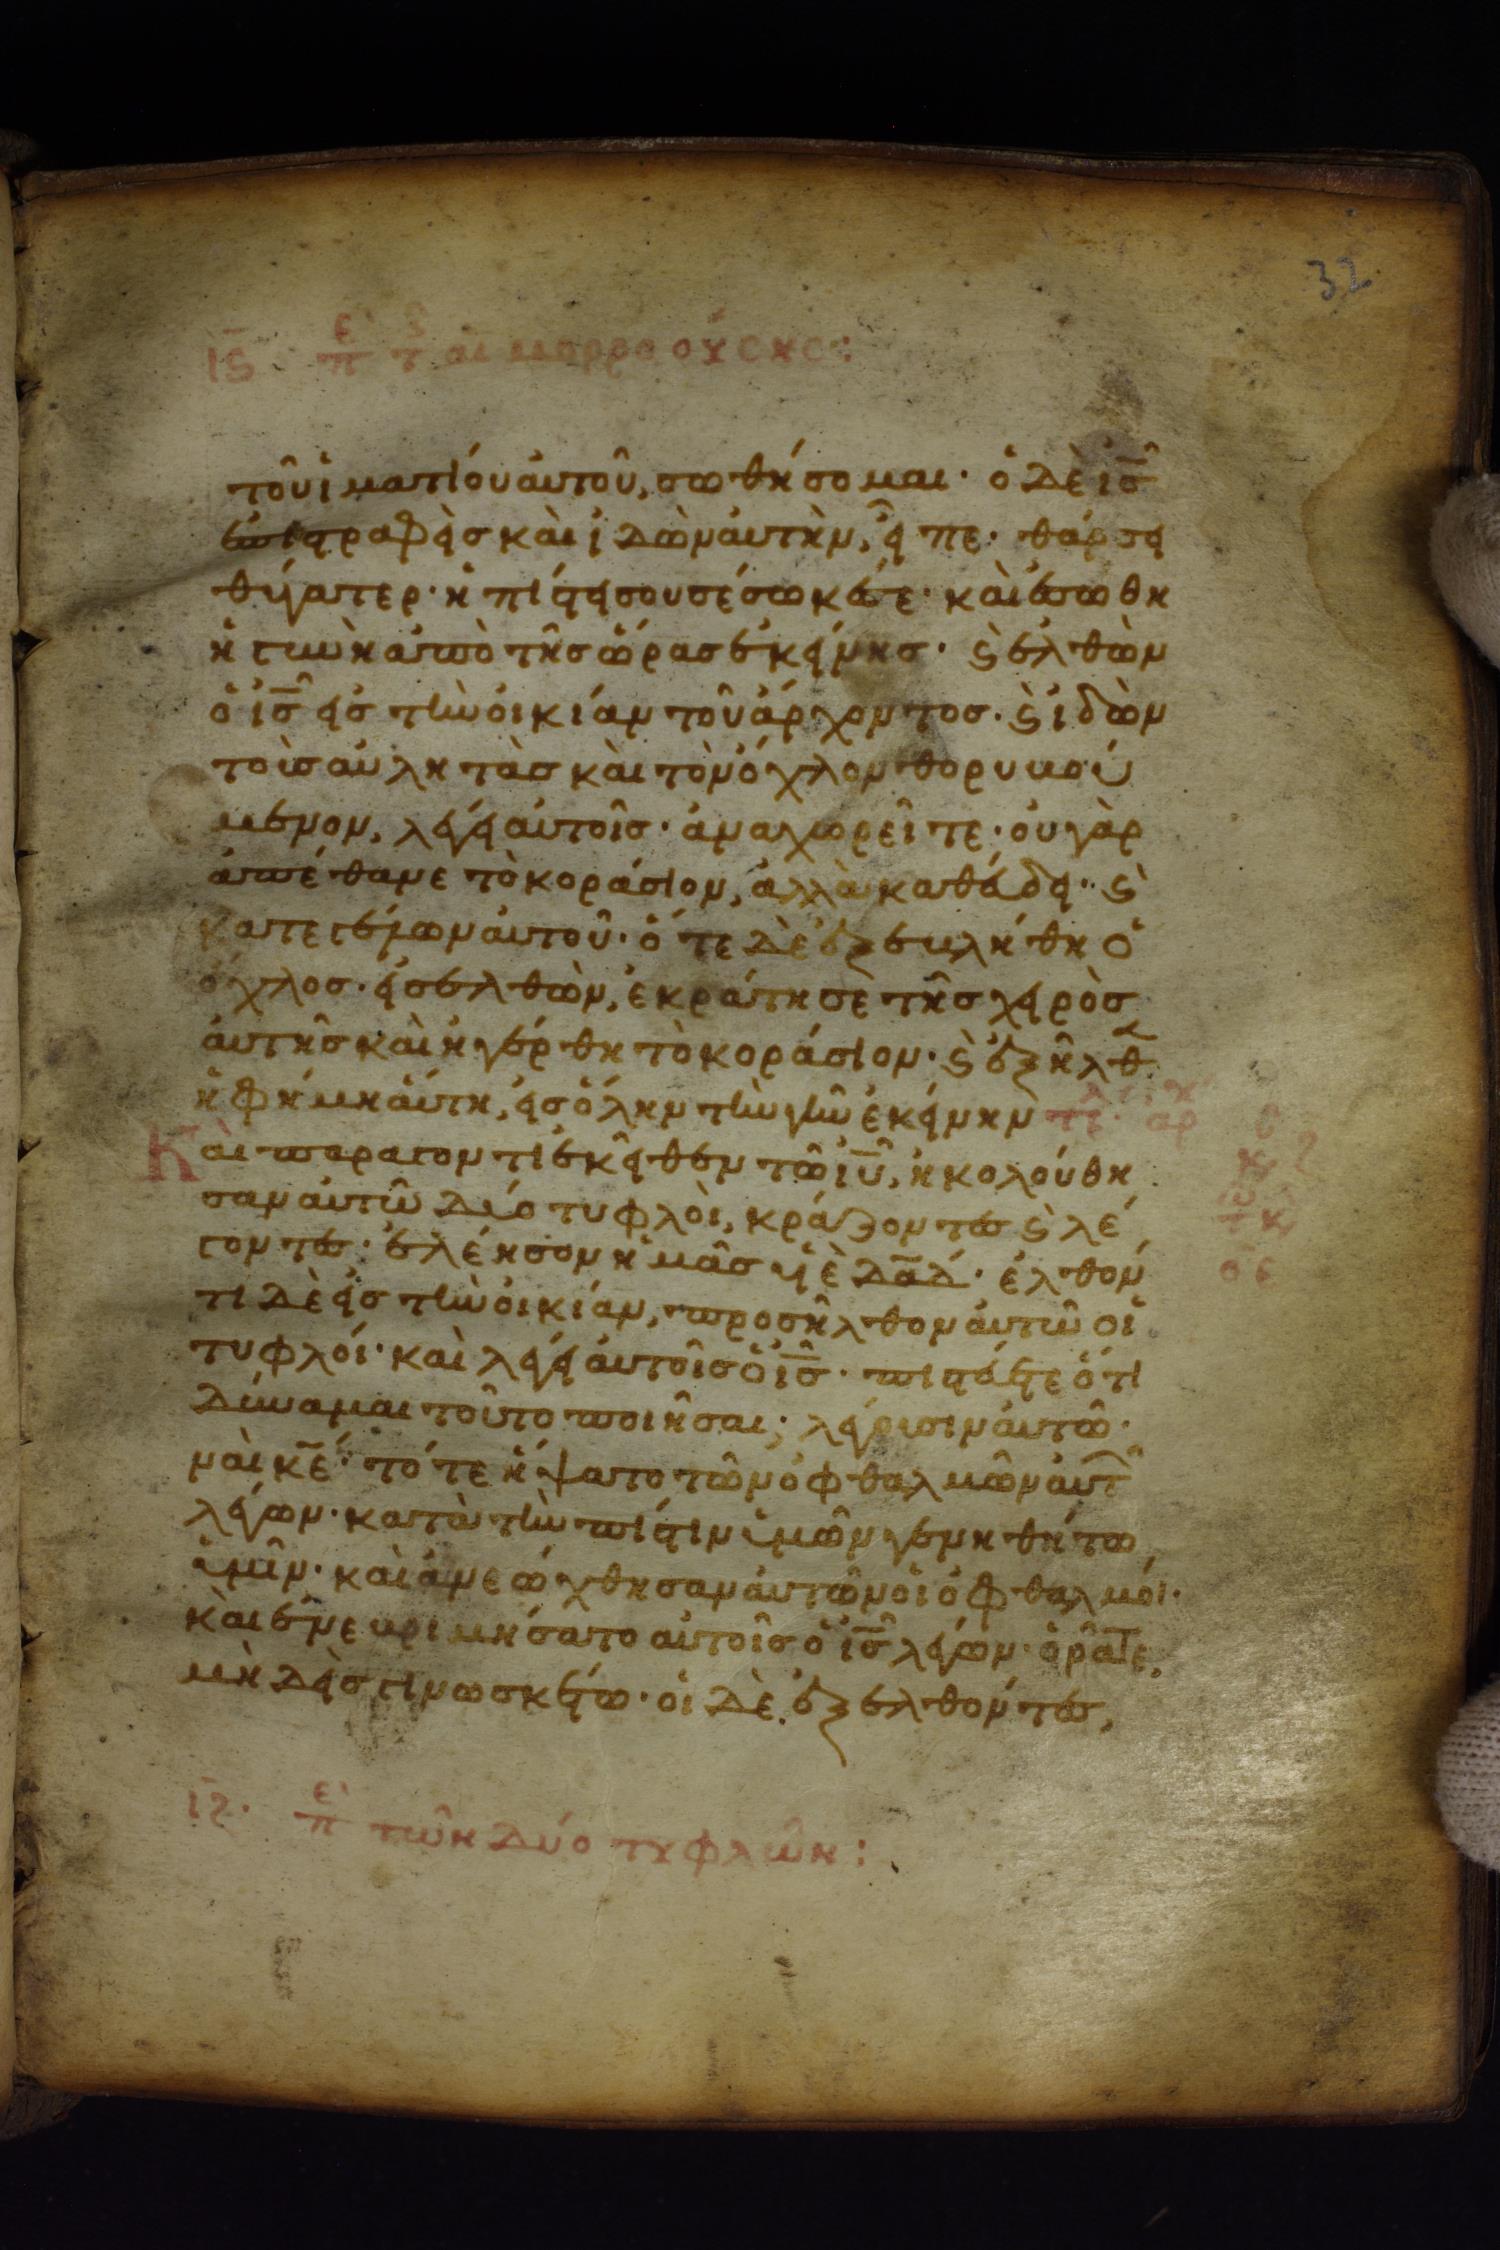 32
ις̅ ἐπ τ αιμορροούσης:
τοῦ ἱματίου αὐτοῦ, σωθήσομαι· ὁ δὲ ἰς̅
ἐπιστραφεὶς καὶ ἰδὼν αὐτὴν, εἶπε· θάρσει
θύγατερ· ἡ πίστις σου σέσωκέ σε· καὶ ἐσώθη
ἡ γυνὴ ἀπὸ τῆς ὥρας ἐκείνης· ϛ ἐλθὼν
ὁ ἰς̅ εἰς τὴν οἰκίαν τοῦ ἄρχοντος· ϛ ἰδὼν
τοὺς αὐλητὰς καὶ τὸν ὄχλον θορυβού
μενον, λέγει αὐτοῖς· ἀναχωρεῖτε· οὐ γὰρ
ἀπέθανε τὸ κοράσιον, ἀλλὰ καθεύδει· ϛ
κατεγέλων αὐτοῦ· ὅτε δὲ ἐξεβλήθη ὁ
ὄχλος· εἰσελθὼν, ἐκράτησε τῆς χειρὸς
αὐτῆς καὶ ἠγέρθη τὸ κοράσιον· ϛ ἐξῆλθ
ἡ φήμη αὕτη, εἰς ὅλην τὴν γῆν ἐκείνην τε· αρ
Καὶ παράγοντι ἐκεῖθεν τῶ ἰυ̅, ἠκολούθη
σαν αὐτῶ δύο τυφλοὶ, κράζοντες ϛ λέ
γοντες· ἐλέησον ἡμᾶς υἱὲ δα̅δ· ἐλθόν
τι δὲ εἰς τὴν οἰκίαν, προσῆλθον αὐτῶ οἱ
τυφλοί· καὶ λέγει αὐτοῖς ὁ ἰς̅· πιστεύετε ὅτι
δύναμαι τοῦτο ποιῆσαι; λέγουσιν αὐτῶ·
ναὶ κε̅· τότε ἥψατο τῶν ὀφθαλμῶν αὐτ
λέγων· κατὰ τὴν πίστιν ὑμῶν γενηθήτω
ὑμῖν· καὶ ἀνεώχθησαν αὐτῶν οἱ ὀφθαλμοί·
καὶ ἐνεβριμήσατο αὐτοῖς ὁ ἰς̅ λέγων· ὁρᾶτε,
μηδεὶς γινωσκέτω· οἱ δὲ ἐξελθόντες,
ιζ̅· ἐπ τῶν δύο τυφλῶν: